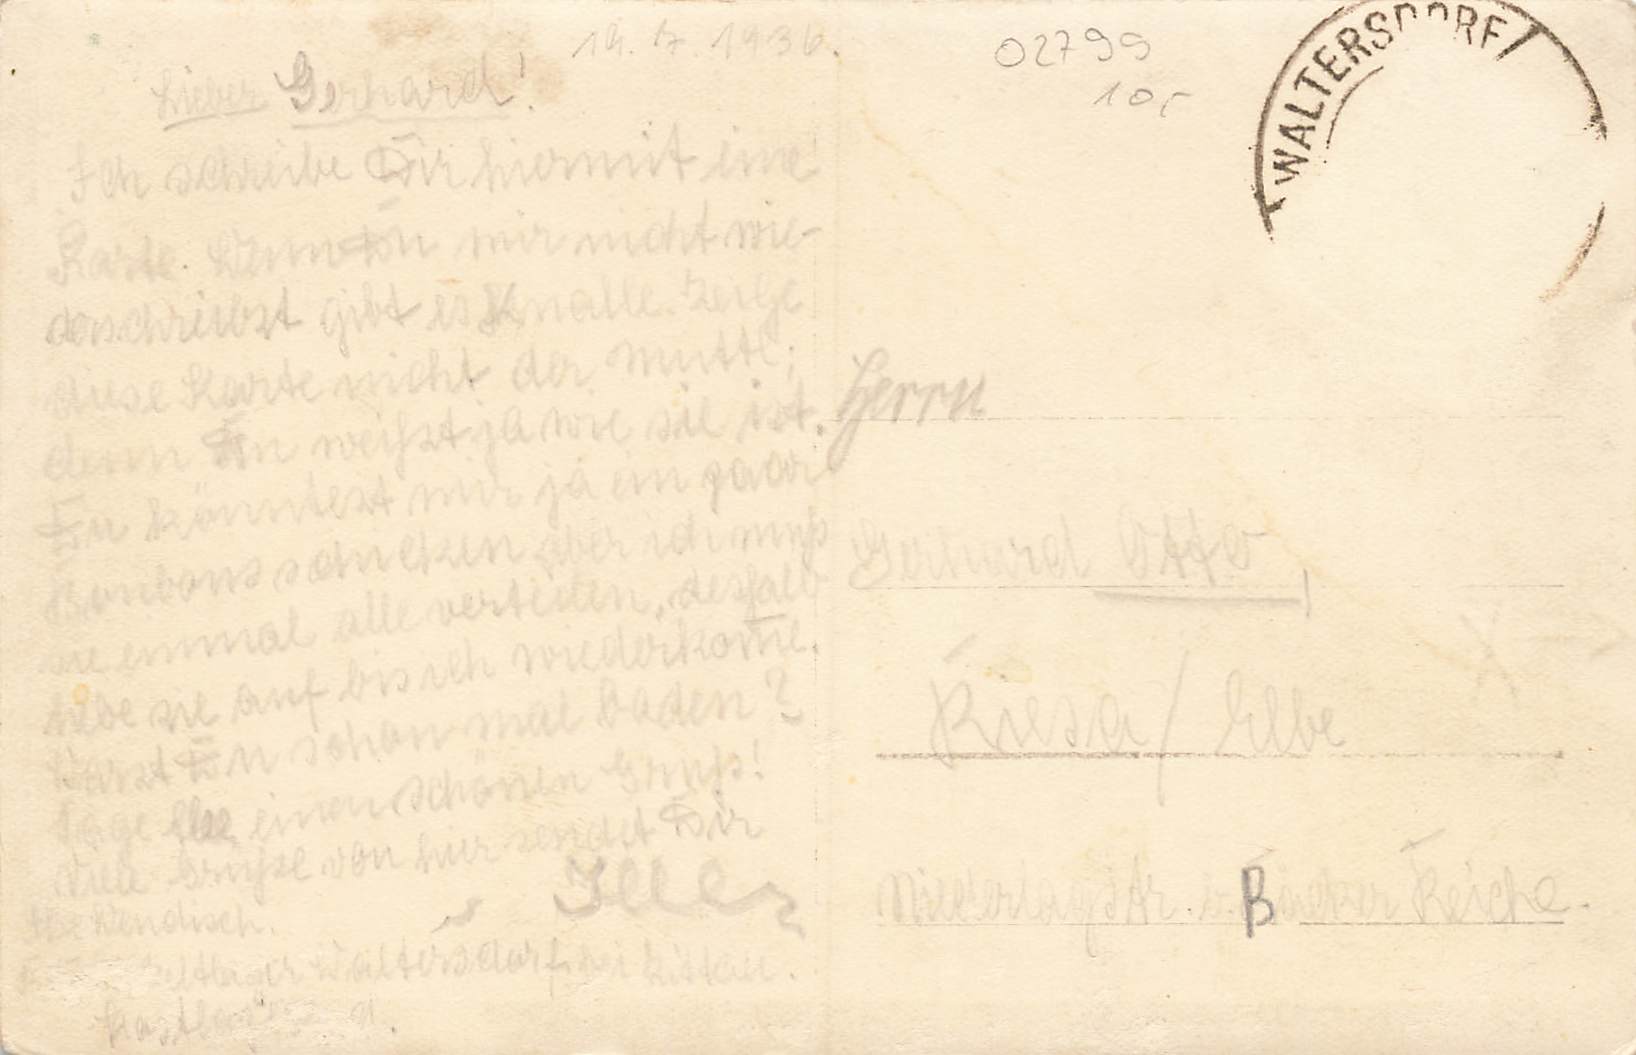 19. 7. 1936.
02799
10,-
WALTERSDORF
Lieber Gerhard!
Ich schreibe Dir hiermit eine
Karte. Wenn Du mir nicht wie-
derschreibst gibt es Knalle. Zeige
diese Karte nicht der Mutti;
denn Du weißt ja wie sie ist.
Du könntest mir ja ein paar
Bonbons schicken, aber ich muß
sie einmal alle verteilen, desfalb
hebe sie auf bis ich wiederkome.
Warst Du schon mal baden?
Sage einen schönen Gruß!
Viele Grüße von hier sendet Dir
Wendisch.
Zeltlager Waltersdorf bei Zittau.
Herrn
Gerhard Otto
Riesa / Elbe
Niederlagstr. b. Bäcker Reiche.